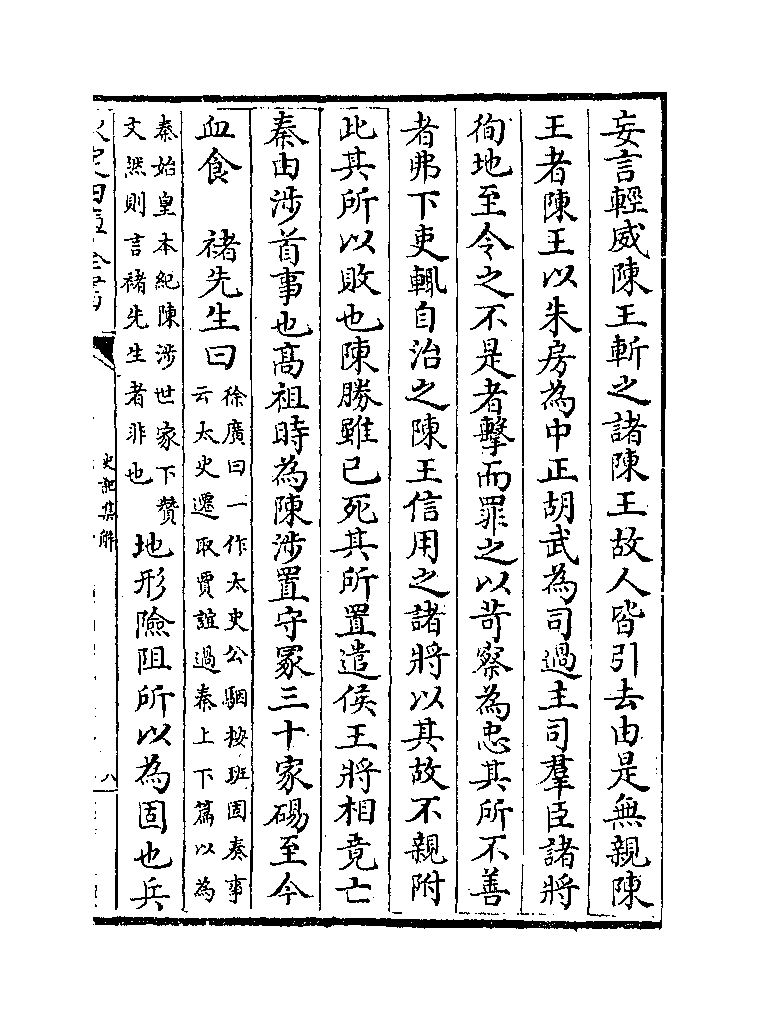 妄言輕威陳王斬之諸陳王故人皆引去由是無親陳
王者陳王以朱房為中正胡武為司過主司羣臣諸將
徇地至令之不是者擊而罪之以苛察為忠其所不善
者弗下吏輒自治之陳王信用之諸將以其故不親附
此其所以敗也陳勝雖已死其所置遣侯王將相竟亡
秦由涉首事也髙祖時為陳涉置守冢三十家碭至今
血食　褚先生曰
徐廣曰一作太史公駰按班固奏事
云太史遷取賈誼過秦上下篇以為
秦始皇本紀陳涉世家下贊
文然則言褚先生者非也
地形險阻所以為固也兵
史記集解
八